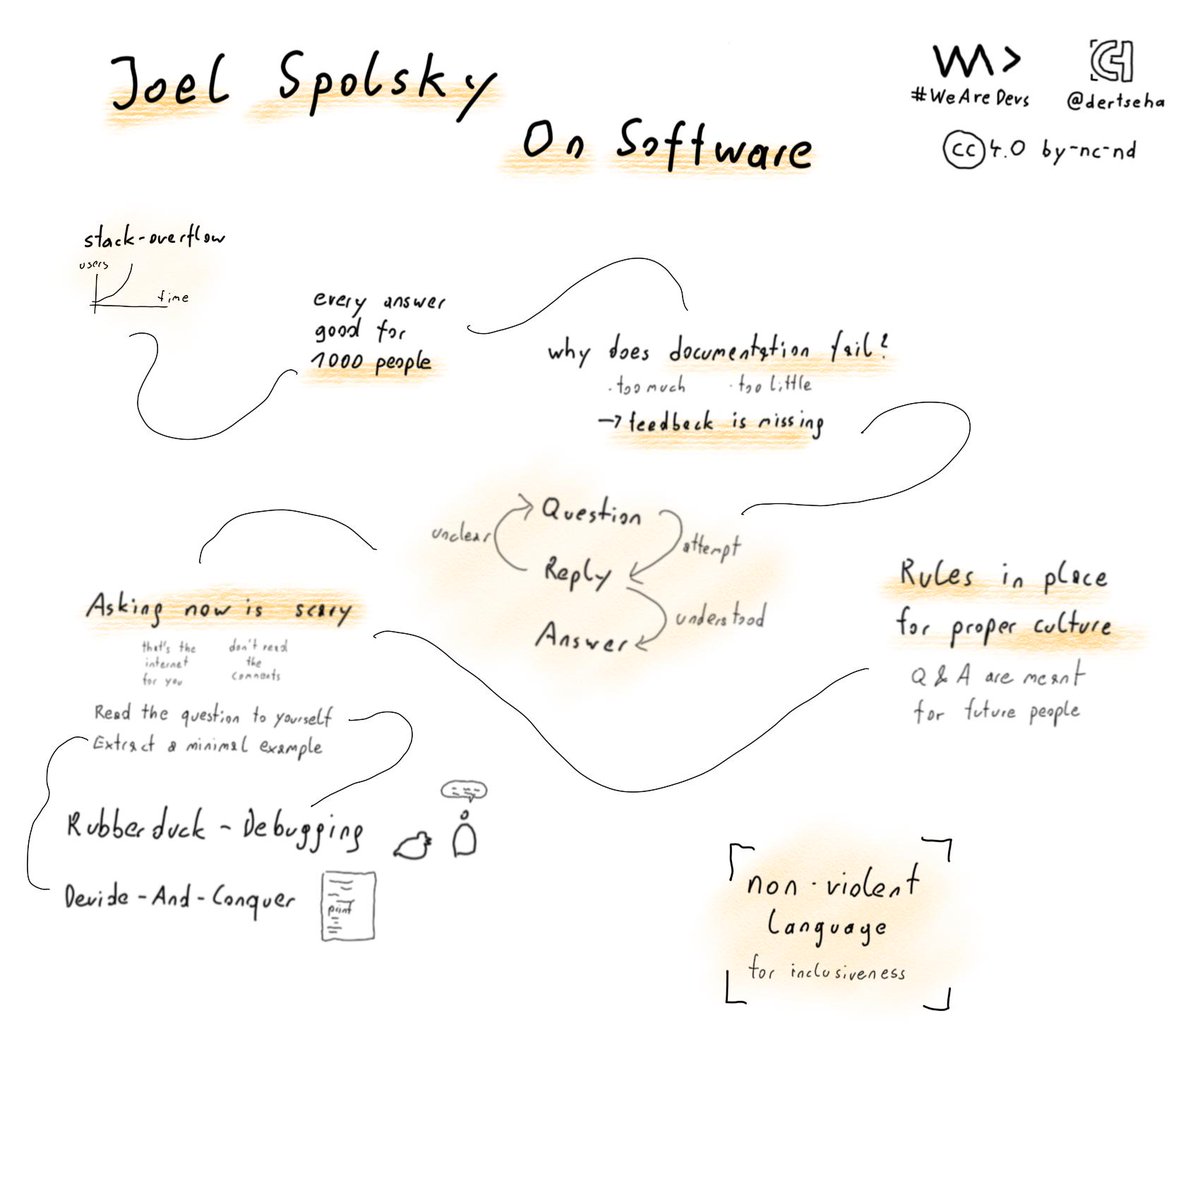 Joel Spolsky
On Software
#WeAreDevs
@dertseha
cc 4.0 by-nc-nd
stack-overflow
users
time
every answer
good for
1000 people
why does documentation fail?
· too much · too little
→ feedback is missing
Question
unclear
attempt
Reply
understood
Answer
Asking now is scary
that's the
internet
for you
don't read
the
comments
Read the question to yourself
Extract a minimal example
Rubberduck - Debugging
Devide-And-Conquer
print
Rules in place
for proper culture
Q & A are meant
for future people
non-violent
language
for inclusiveness